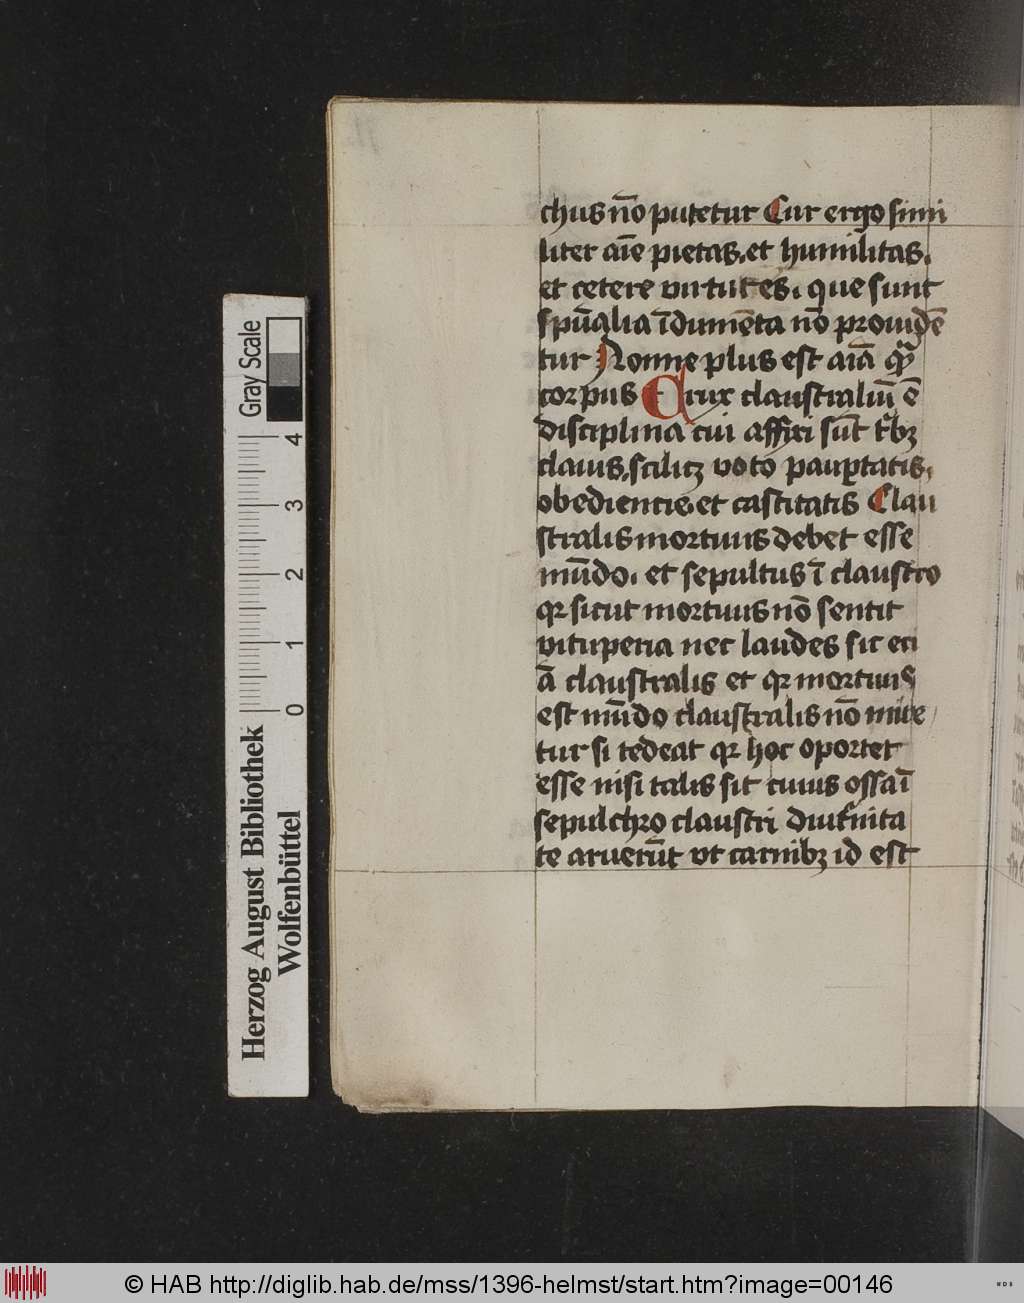 chus nō putetur Cur ergo simi
liter aīe pietas, et humilitas,
et cetere virtutes, que sunt
spūalia īdumēta nō prouidē
tur Nonne plus est aīa qᷓ
corpus Crux claustraliū ē
disciplina cui affixi sūt tⁱbꝫ
clauis, scilicꝫ voto pauꝑtatis,
obediencie, et castitatis Clau
stralis mortuus debet esse
mūdo, et sepultus ī claustro
qꝛ sicut mortuus nō sentit
vituperia nec laudes sic eci
ā claustralis et qꝛ mortuus
est mūdo claustralis nō
tur si tedeat qꝛ hoc oportet
esse nisi talis sit cuius ossa ī
sepulchro claustri diut̾nita
te aruerūt vt carnibꝫ id est
Herzog August Bibliothek
Wolfenbüttel
Gray Scale
0 1 2 3 4
© HAB http://diglib.hab.de/mss/1396-helmst/start.htm?image=00146